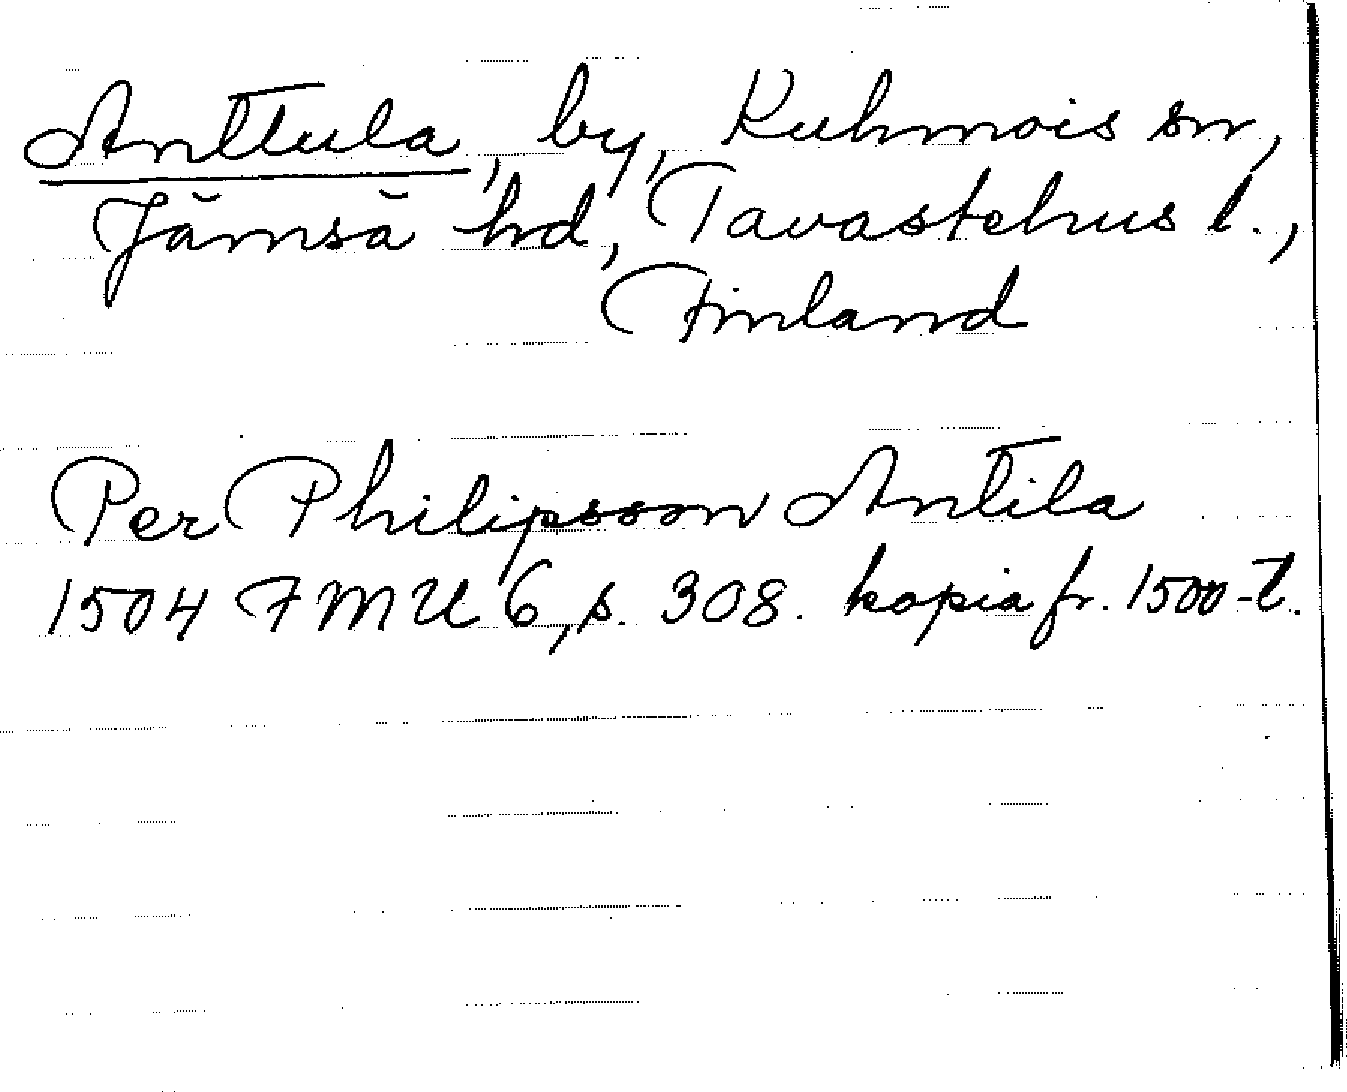 Anttula, by, Kuhmois sn,
Jämsä hd, Tavastehus l.,
Finland
Per Philipsson Antila
1504 FMU 6, s. 308. kopia fr. 1500-t.